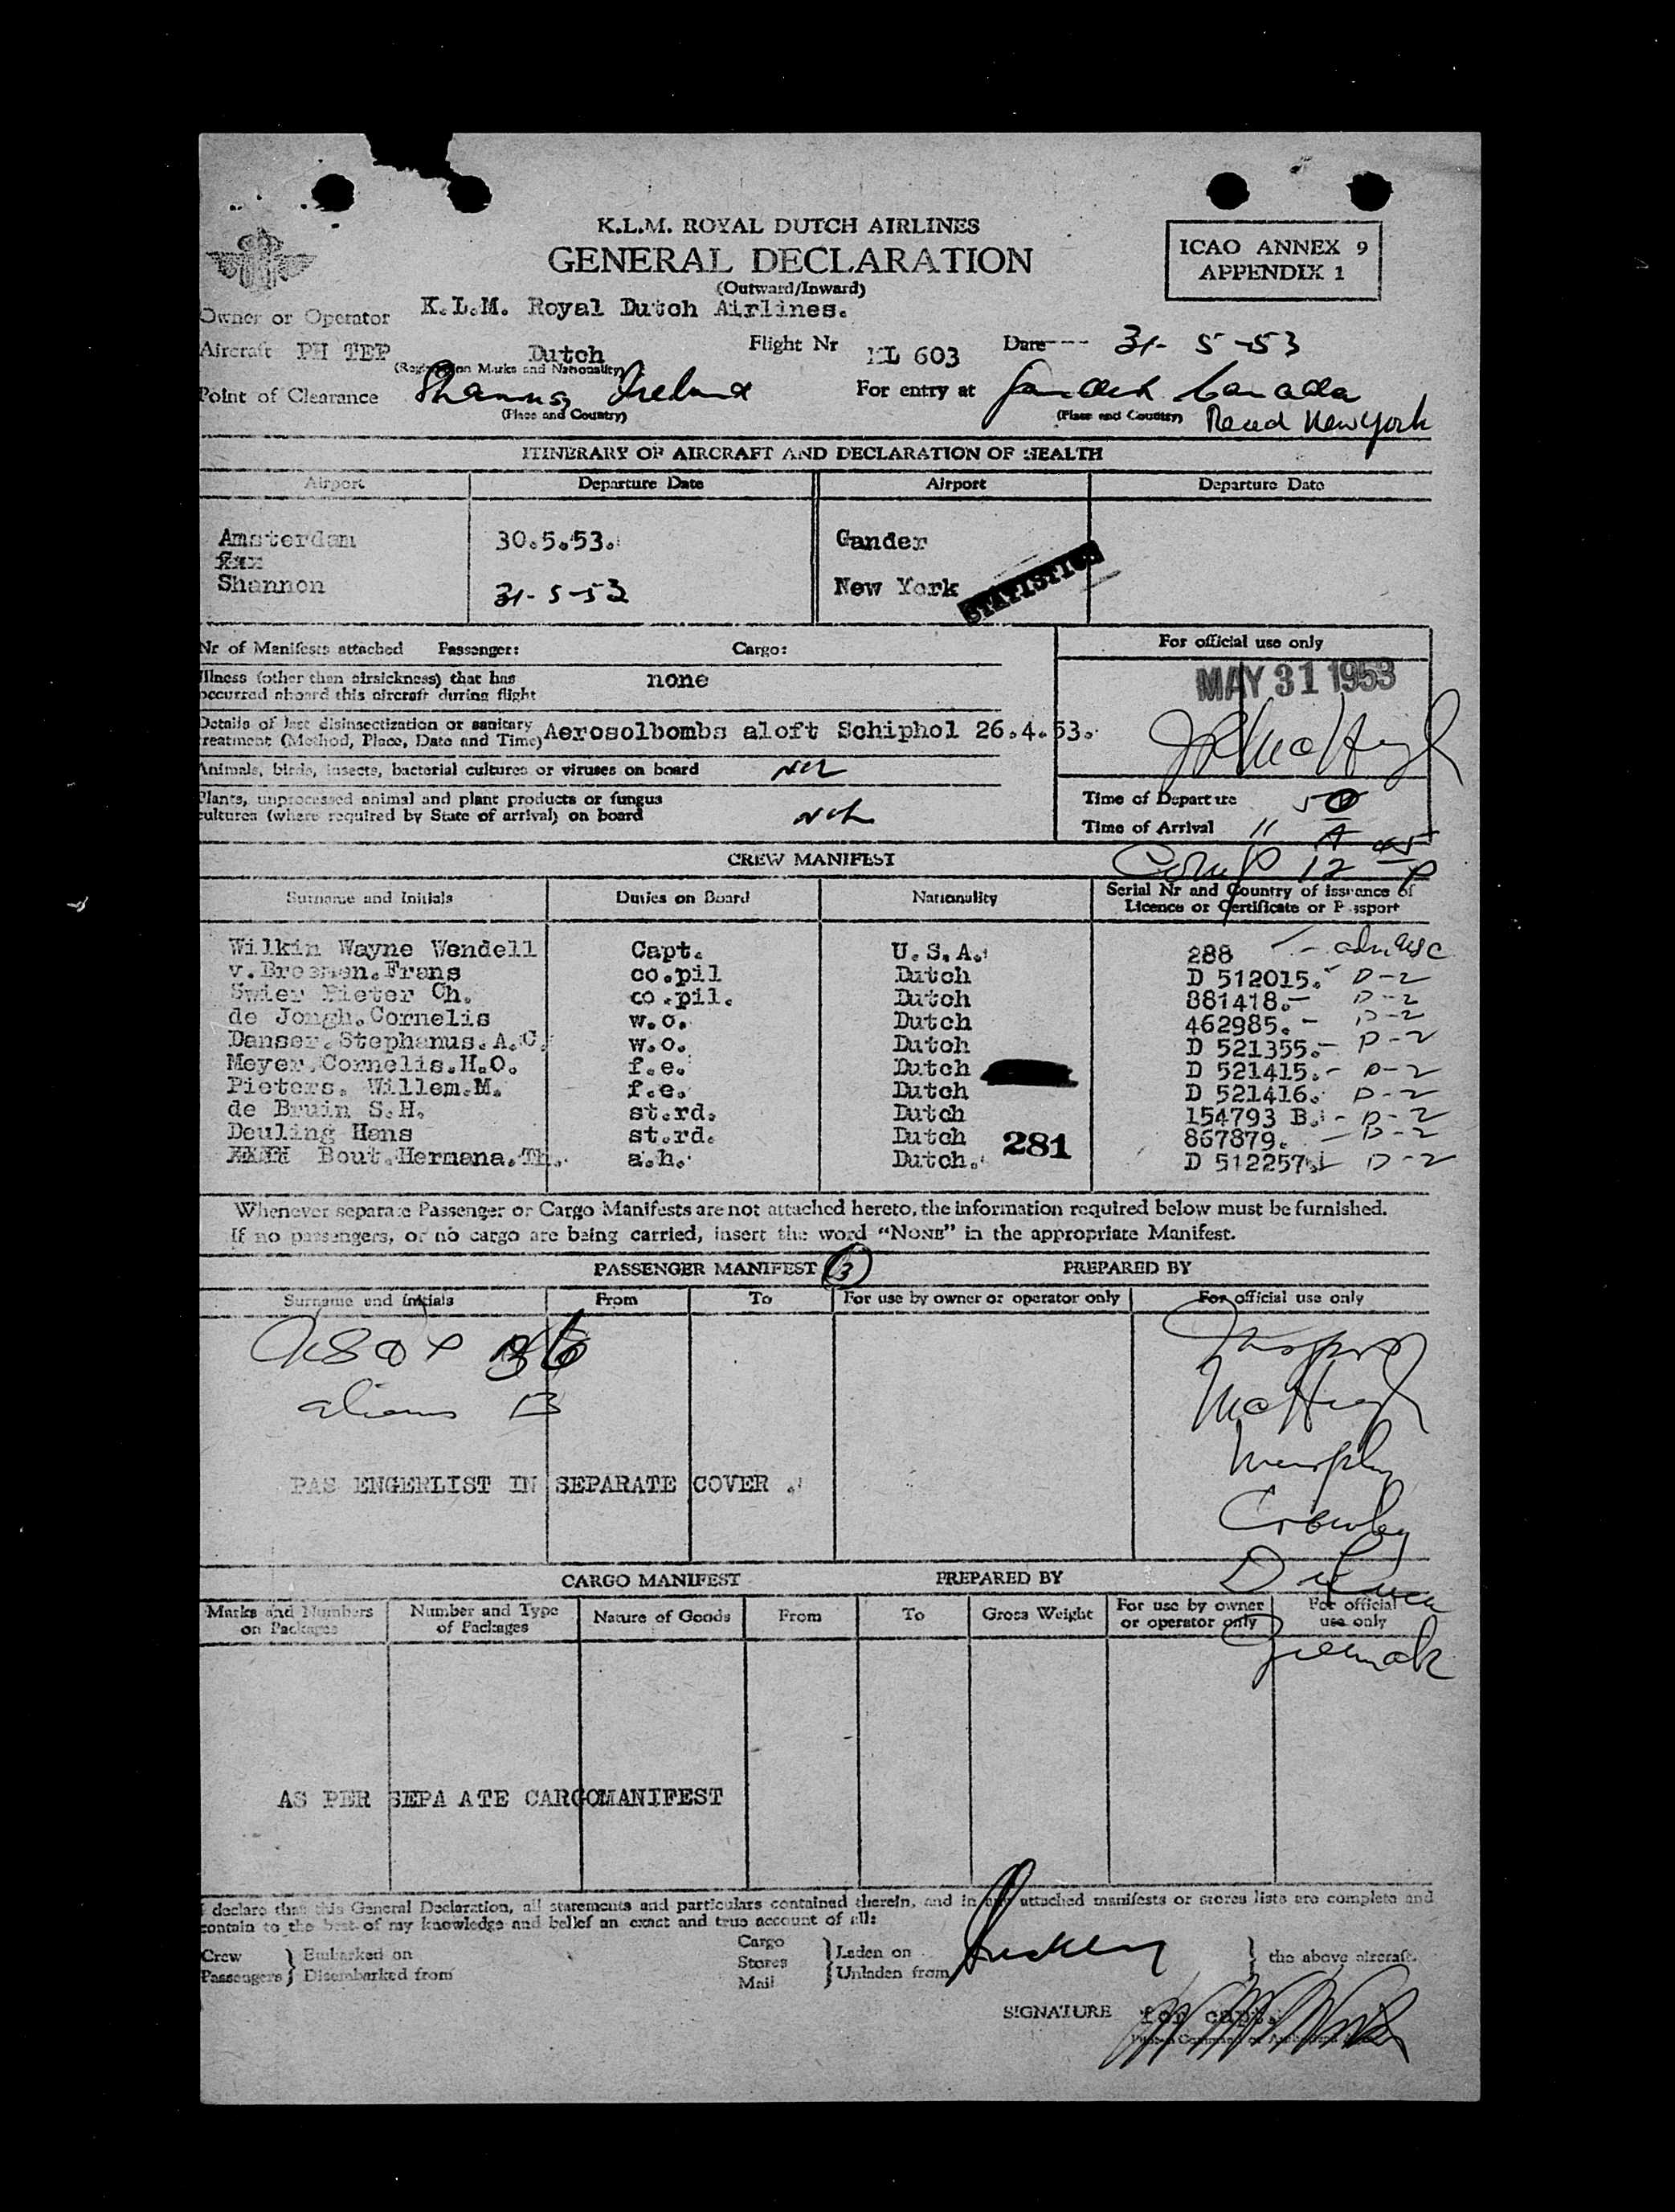 K.L.M. ROYAL DUTCH AIRLINES
GENERAL DECLARATION
(Outward/Inward)
ICAO ANNEX 9
APPENDIX 1
Owner or Operator K.L.M. Royal Dutch Airlines.
Aircraft PH TEP Dutch Flight Nr KL 603 Date 31-5-53
(Registration Marks and Nationality)
Point of Clearance Shannon Ireland For entry at Gander Canada
(Place and Country) (Place and Country) New York
ITINERARY OF AIRCRAFT AND DECLARATION OF HEALTH
Airport Departure Date Airport Departure Date
Amsterdam 30.5.53. Gander
Shannon 31-5-53 New York
STATISTICS
Nr of Manifests attached Passenger: Cargo: For official use only
Illness (other than airsickness) that has none MAY 31 1953
occurred aboard this aircraft during flight
Details of last disinsectization or sanitary Aerosolbombs aloft Schiphol 26.4.53.
treatment (Method, Place, Date and Time)
Animals, birds, insects, bacterial cultures or viruses on board NIL
Plants, unprocessed animal and plant products or fungus NIL Time of Departure
cultures (where required by State of arrival) on board Time of Arrival
CREW MANIFEST
Surname and Initials Duties on Board Nationality Serial Nr and Country of issuance of
Licence or Certificate or Passport
Wilkin Wayne Wendell Capt. U.S.A. 288
v.Broemen.Frans co.pil Dutch D 512015. D-2
Swier Pieter Ch. co.pil. Dutch 881418.- D-2
de Jongh.Cornelis w.o. Dutch 462985.- D-2
Danser.Stephanus.A.C. w.o. Dutch D 521355.- D-2
Meyer.Cornelis.H.O. f.e. Dutch D 521415.- D-2
Pieters. Willem.M. f.e. Dutch D 521416. D-2
de Bruin S.H. st.rd. Dutch 154793 B. - D-2
Deuling Hans st.rd. Dutch 281 867879. - D-2
Bout.Hermana.Th. a.h. Dutch. D 512257 D-2
Whenever separate Passenger or Cargo Manifests are not attached hereto, the information required below must be furnished.
If no passengers, or no cargo are being carried, insert the word “NONE” in the appropriate Manifest.
PASSENGER MANIFEST PREPARED BY
Surname and Initials From To For use by owner or operator only For official use only
McHugh
aliens 13
Murphy
PAS ENGERLIST IN SEPARATE COVER .
Crowley
CARGO MANIFEST PREPARED BY
Marks and Numbers on Packages Number and Type of Packages Nature of Goods From To Gross Weight For use by owner or operator only For official use only
AS PER SEPA ATE CARGOMANIFEST
I declare that this General Declaration, all statements and particulars contained therein, and in any attached manifests or stores lists are complete and
contain to the best of my knowledge and belief an exact and true account of all:
Crew Passengers } Embarked on Disembarked from Cargo Stores Mail } Laden on Unladen from } the above aircraft.
SIGNATURE for capt.